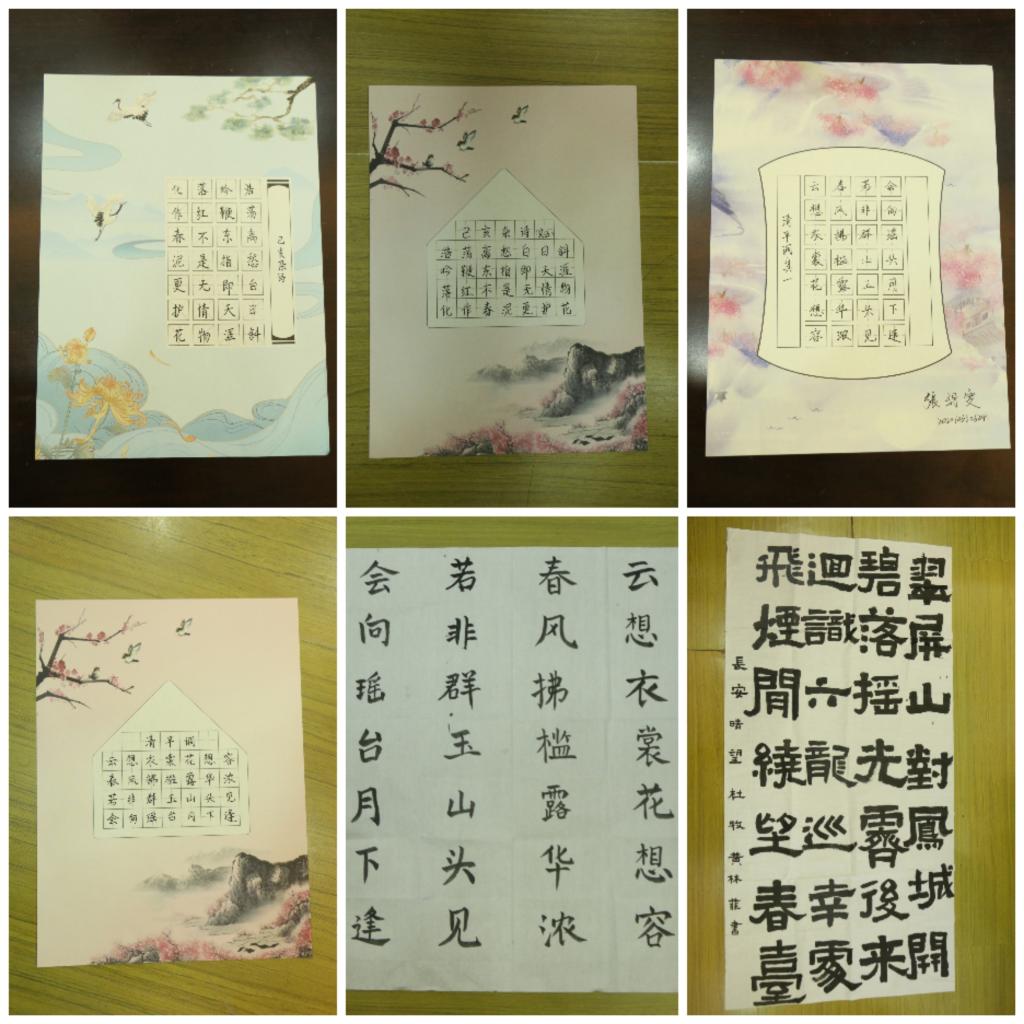 己亥杂诗
浩荡离愁白日斜
吟鞭东指即天涯
落红不是无情物
化作春泥更护花
己亥杂诗
浩荡离愁白日斜
吟鞭东指即天涯
落红不是无情物
化作春泥更护花
清平调其一
云想衣裳花想容
春风拂槛露华浓
若非群玉山头见
会向瑶台月下逢
清平调
云想衣裳花想容
春风拂槛露华浓
若非群玉山头见
会向瑶台月下逢
云想衣裳花想容
春风拂槛露华浓
若非群玉山头见
会向瑶台月下逢
翠屏山對鳳城開
碧落摇光霽後来
迴識六龍巡幸處
飛煙閒繞望春臺
長安晴望杜牧黄林菲書